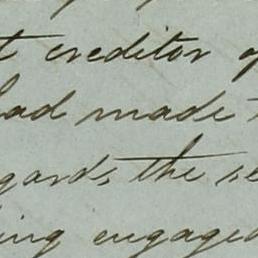 t creditor of
had made t
gards the se
ing engaged